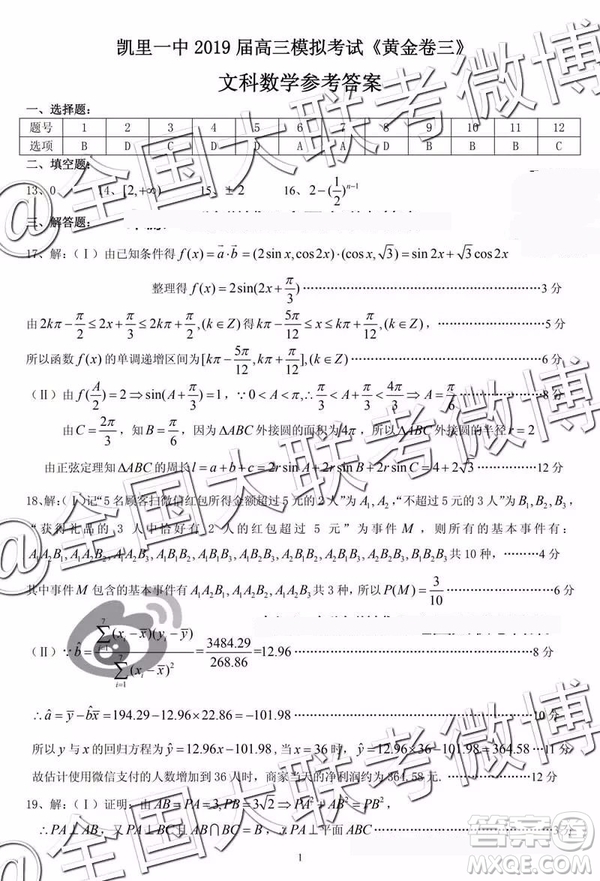 凯里一中 2019 届高三模拟考试《黄金卷三》
文科数学参考答案
一、选择题:
题号 1 2 3 4 5 6 7 8 9 10 11 12
选项 B D C D D A C
二、填空题:
13、0 14、[2,+∞) 15、±2 16、2-(1/2)^{n-1}
三、解答题:
17、解:(Ⅰ)由已知条件得 f(x)=a·b=(2sin x,cos2x)·(cos x,√3)=sin2x+√3cos2x
整理得 f(x)=2sin(2x+π/3) ……3分
由 2kπ-π/2≤2x+π/3≤2kπ+π/2,(k∈Z) 得 kπ-5π/12≤x≤kπ+π/12, ……5分
所以函数 f(x) 的单调递增区间为[kπ-5π/12,kπ+π/12],(k∈Z) ……6分
(Ⅱ)由 f(A/2)=2⇒sin(A+π/3)=1,∵0<A<π,∴π/3<A+π/3<4π/3 ……8分
由 C=2π/3,知 B=π/6,因为 ΔABC 外接圆的面积为 4π,所以 ΔABC 外接圆的半径 r=2
由正弦定理知 ΔABC 的周长 l=a+b+c=2rsin A+2rsin B+2rsin C=4+2√3 ……12分
18、解:(Ⅰ)记“5 名顾客扫微信红包所得金额超过 5 元的 2 人”为 A₁,A₂,“不超过 5 元的 3 人”为 B₁,B₂,B₃,
“获得礼品的 3 人中恰好有 2 人的红包超过 5 元”为事件 M,则所有的基本事件有:
共 10 种, ……4分
其中事件 M 包含的基本事件有 A₁A₂B₁,A₁A₂B₂,A₁A₂B₃ 共 3 种,所以 P(M)=3/10 ……6分
(Ⅱ)∵b̂=∑_{i=1}^{7}(x_i-x̄)(y_i-ȳ)/∑_{i=1}^{7}(x_i-x̄)²=3484.29/268.86=12.96 ……8分
∴â=ȳ-b̂x̄=194.29-12.96×22.86=-101.98 ……10分
所以 y 与 x 的回归方程为 ŷ=12.96x-101.98,当 x=36 时,ŷ=12.96×36-101.98=364.58
故估计使用微信支付的人数增加到 36 人时,商店当天的净利润约为 364.58 元. ……12分
19、解:(Ⅰ)证明:由 AB=PA=3,PB=3√2⇒PA²+AB²=PB²,
∴PA⊥AB,又 PA⊥BC 且 AB∩BC=B,∴PA⊥平面 ABCD ……3分
1
@全国大联考微博
@全国大联考微博
答案圈
MXQE.COM